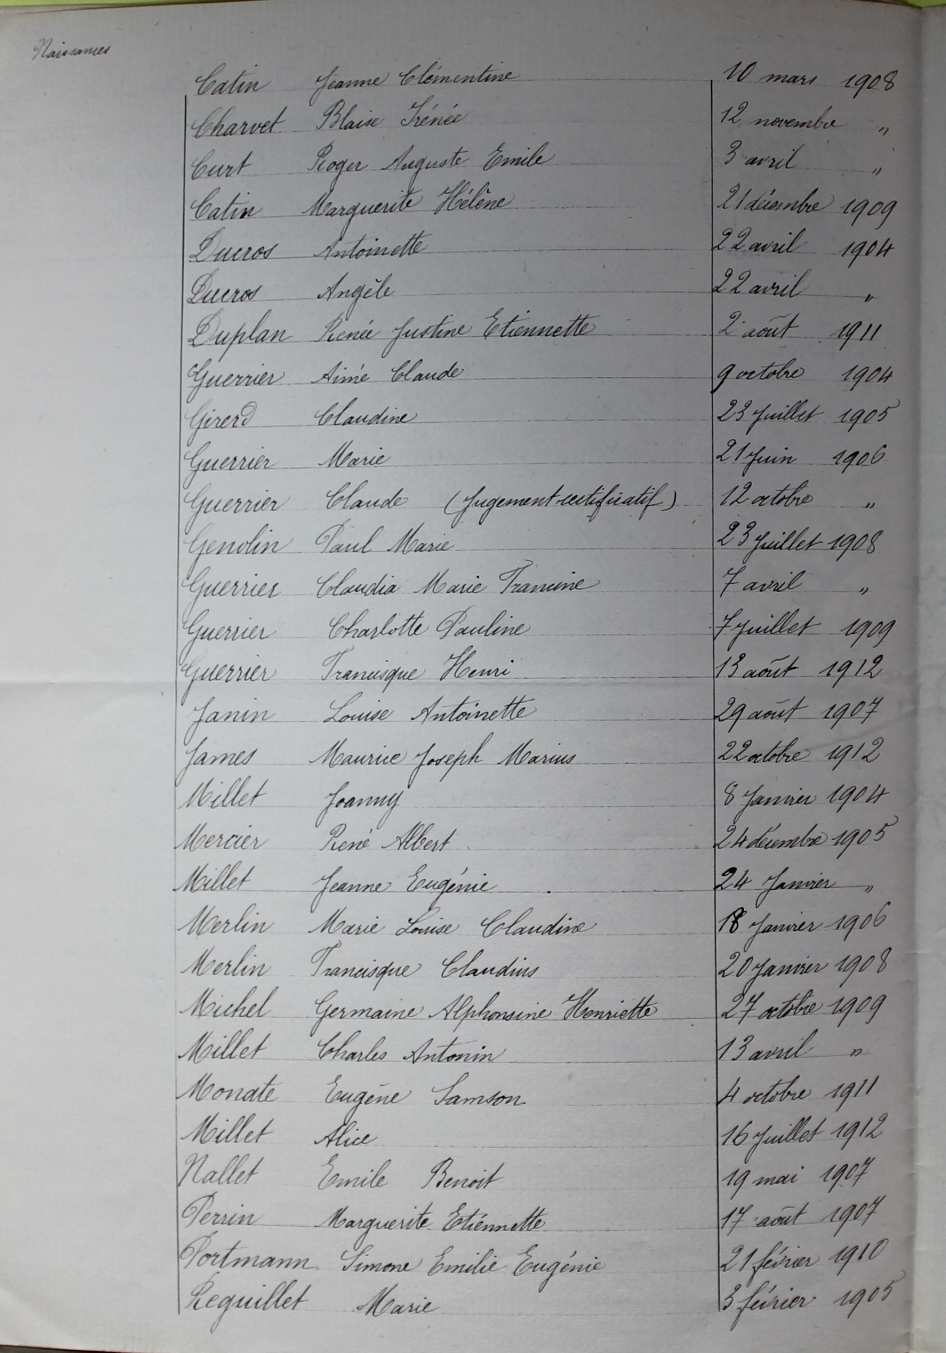 Naissances
Catin Jeanne Clémentine 10 mars 1908
Charvet Blaise Irénée 12 novembre "
Curt Roger Auguste Emile 3 avril "
Catin Marguerite Hélène 21 décembre 1909
Ducros Antoinette 22 avril 1904
Ducros Angèle 22 avril "
Duplan Renée Justine Etiennette 2 août 1911
Guerrier Aimé Claude 9 octobre 1904
Girerd Claudine 23 Juillet 1905
Guerrier Marie 21 Juin 1906
Guerrier Claude (Jugement rectificatif) 12 octobre "
Genolin Paul Marie 23 Juillet 1908
Guerrier Claudia Marie Francine 7 avril "
Guerrier Charlotte Pauline 7 Juillet 1909
Guerrier Francisque Henri 13 août 1912
Janin Louise Antoinette 29 août 1907
James Maurice Joseph Marius 22 octobre 1912
Millet Joanny 8 Janvier 1904
Mercier René Albert 24 décembre 1905
Millet Jeanne Eugénie 24 Janvier "
Merlin Marie Louise Claudine 18 Janvier 1906
Merlin Francisque Claudius 20 Janvier 1908
Michel Germaine Alphonsine Henriette 27 octobre 1909
Millet Charles Antonin 13 avril "
Monate Eugène Samson 4 octobre 1911
Millet Alice 16 Juillet 1912
Nallet Emile Benoit 19 mai 1907
Perrin Marguerite Etiénnette 17 août 1907
Portmann Simone Emilie Eugénie 21 février 1910
Reguillet Marie 3 février 1905